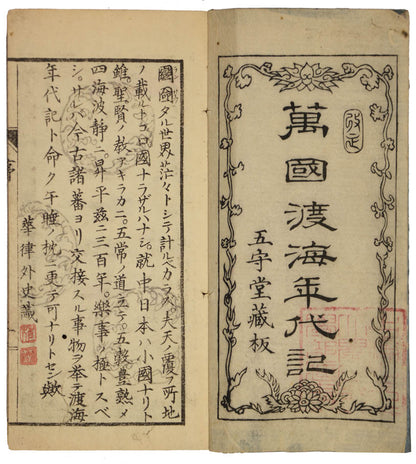 改正
萬國渡海年代記
五守堂藏板
圖圖タル世界茫々トシテ計ルベカラズ夫天ノ覆フ所地
ノ載ルトコロ國ナラザルハナシ就中日本ハ小國ナリト
雖聖賢ノ教アキラカニ五常ノ道立テ五穀豊熟メ
四海波静ニ昇平茲ニ三百年樂事ノ極トスベ
シサルバ今古諸蕃ヨリ交接スル事物ヲ挙テ渡海
年代記ト命ク午睡ノ枕ニ更テ可ナリトセン歟
華律外史識